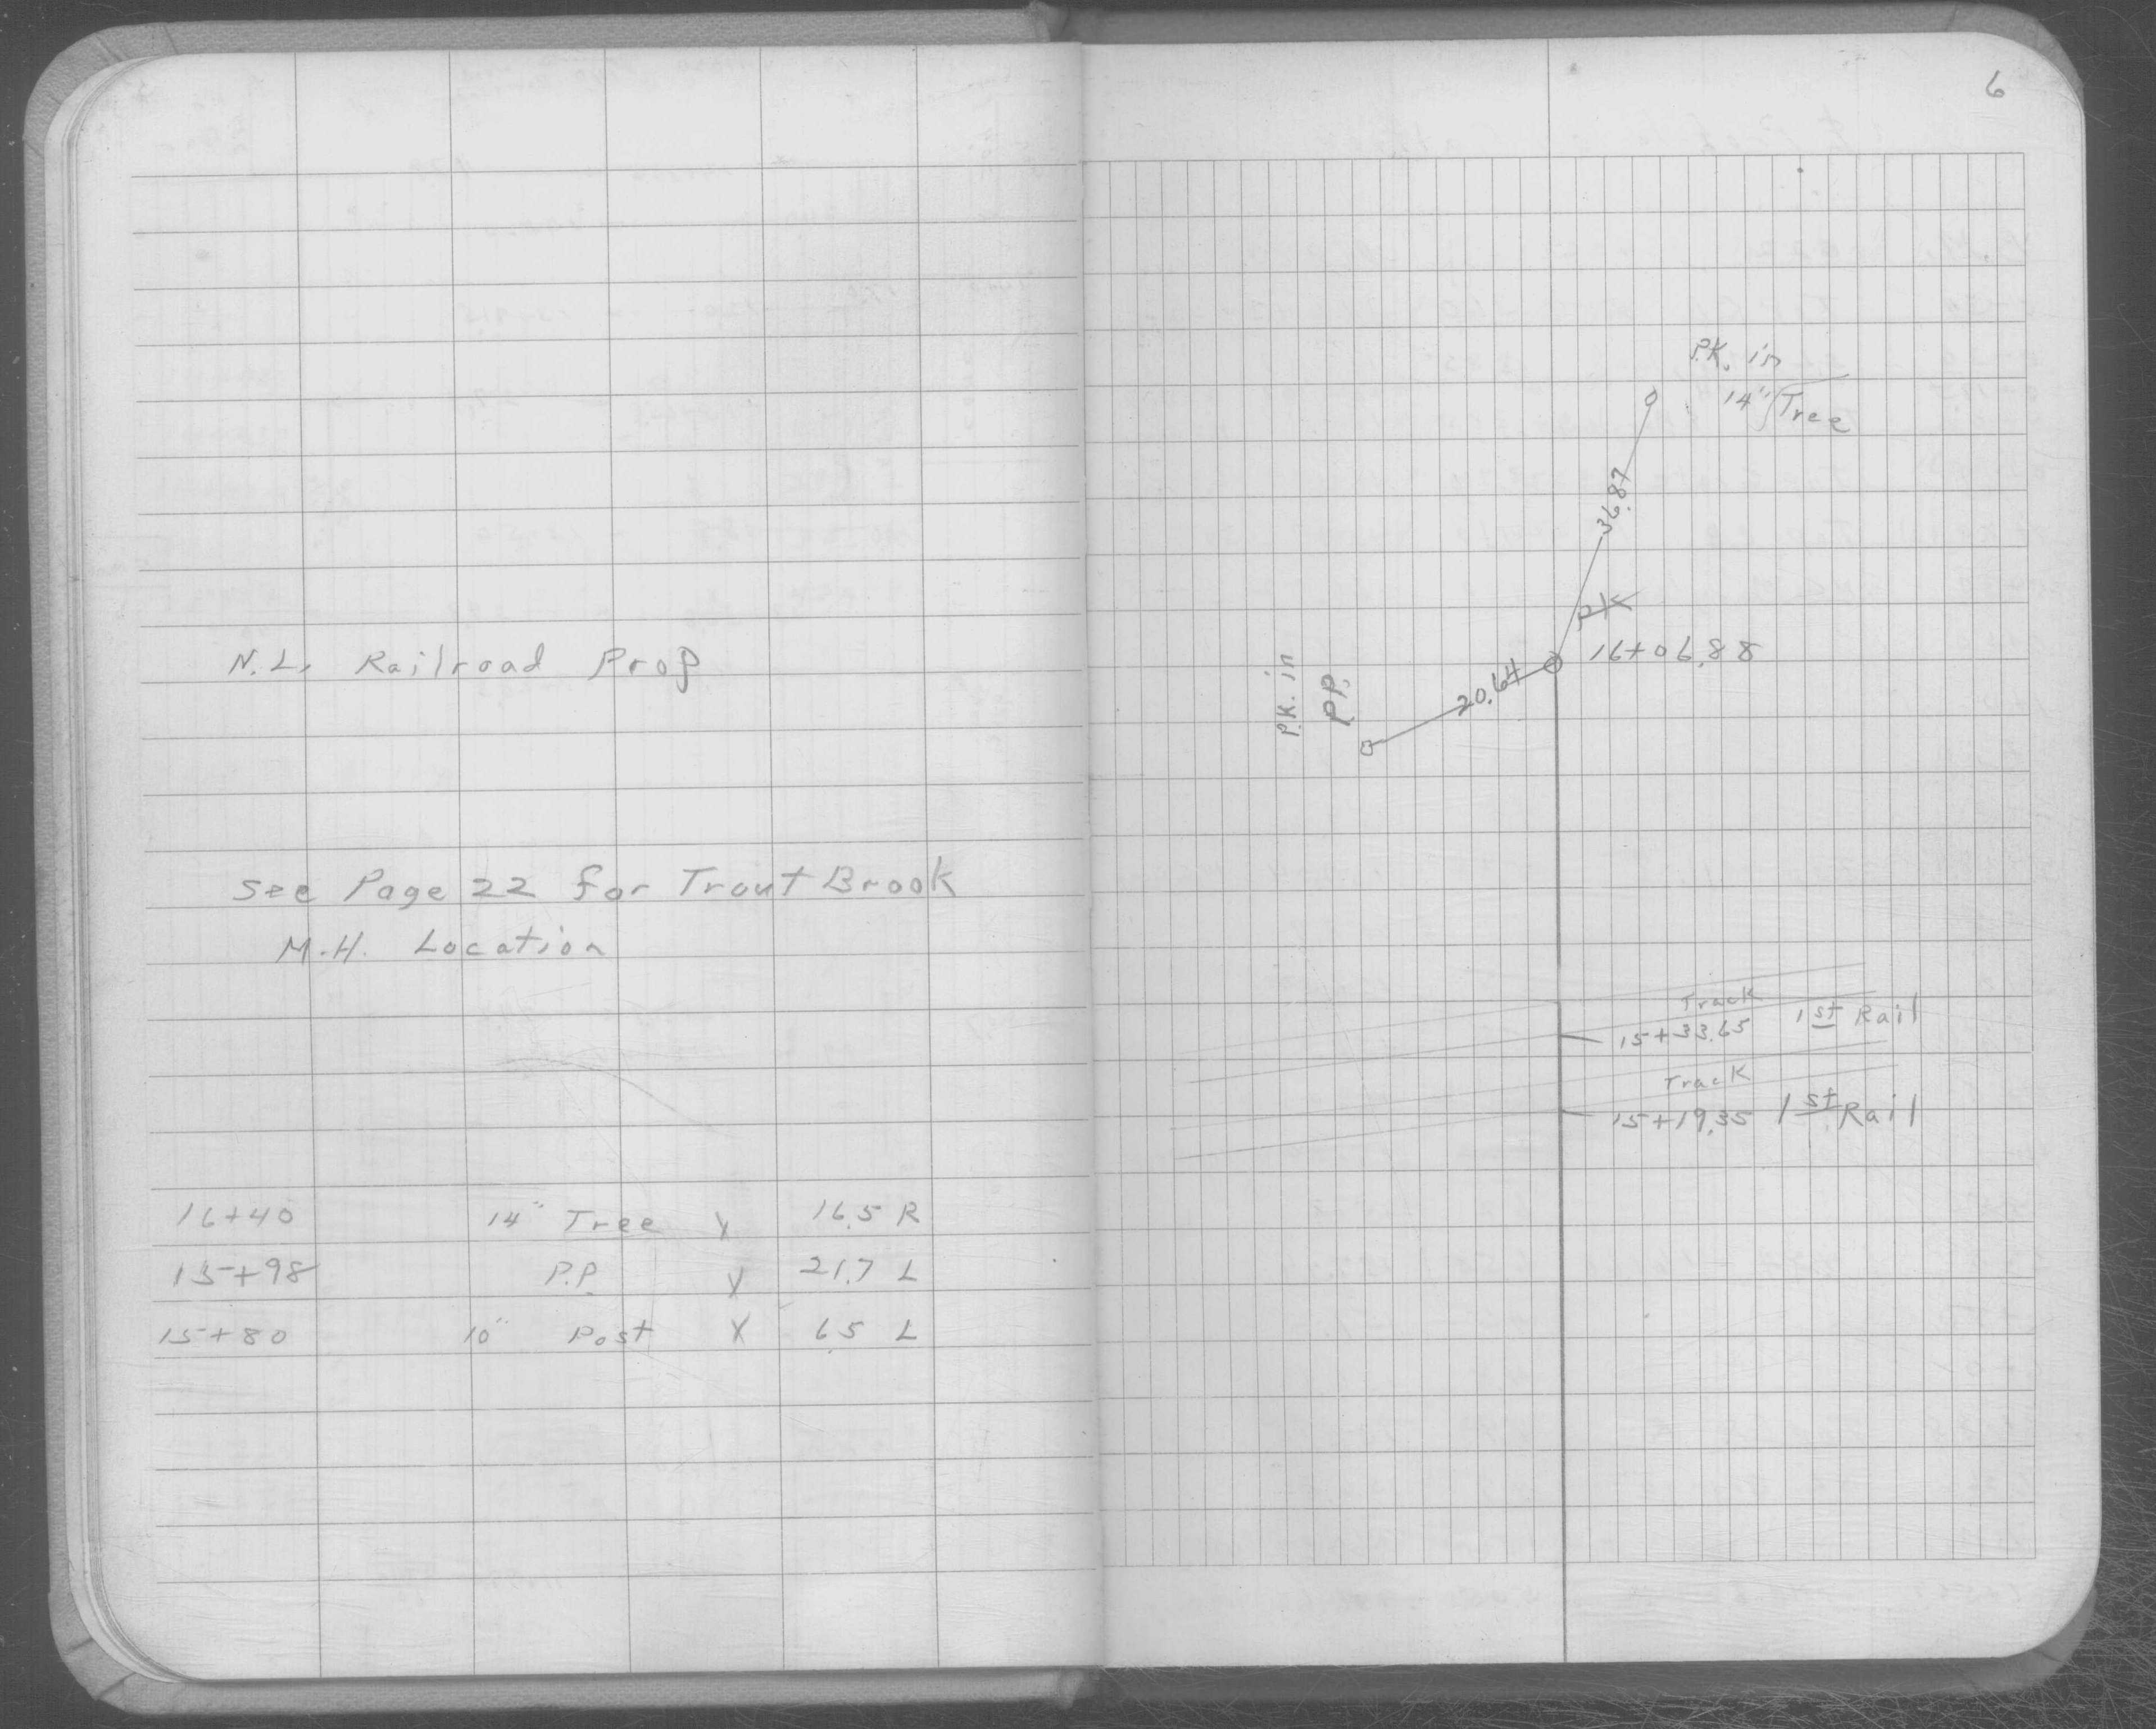 N.L. Railroad Prop
See Page 22 for Trout Brook
M.H. Location
16+40 14" Tree X 16.5 R
15+98 P.P. X 21.7 L
15+80 10" Post X 6.5 L
6
P.K. in
14" Tree
36.87
PK
16+06.88
20.64
P.K. in
P.P.
Track
15+33.65 1st Rail
Track
15+19.35 1st Rail